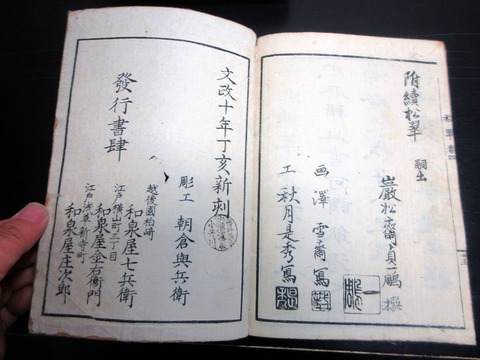 附續松翠 嗣出
巖松齋貞一鵬 撰
画 澤雪齋寫
工 秋月是秀寫
文政十年丁亥新刻
彫工 朝倉與兵衛
發行書肆
越後國柏崎
和泉屋七兵衛
江戸横山町二丁目
和泉屋金右衛門
江戸浅草新寺町
和泉屋庄次郎